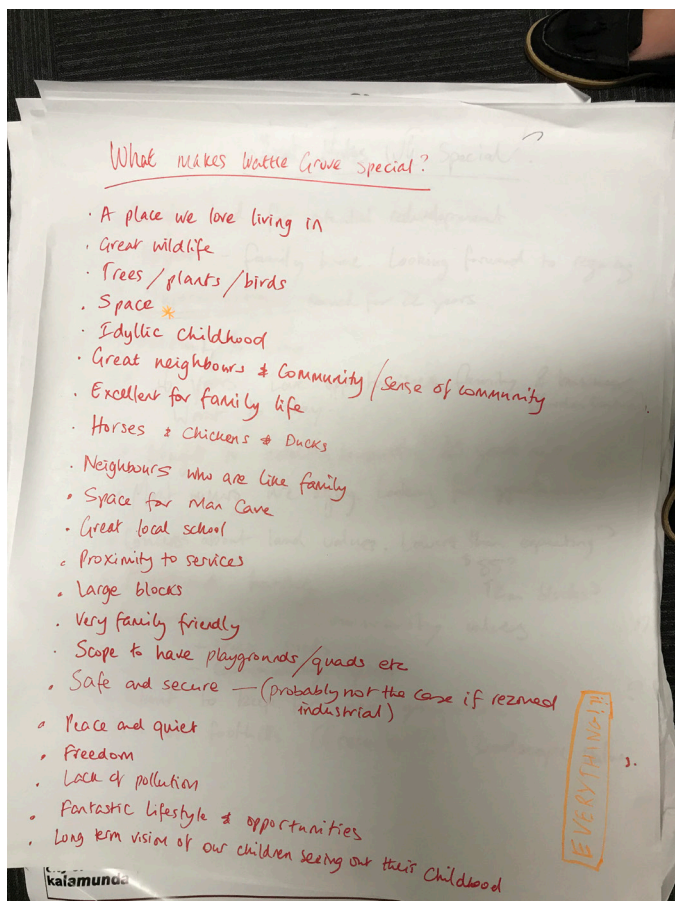 What makes Wattle Grove special?
· A place we love living in
· Great wildlife
· Trees/plants/birds
· Space *
· Idyllic childhood
· Great neighbours & Community/sense of community
· Excellent for family life
· Horses & Chickens & Ducks
· Neighbours who are like family
· Space for Man Cave
· Great local school
· Proximity to services
· Large blocks
· Very family friendly
· Scope to have playgrounds/quads etc
· Safe and secure — (probably not the case if rezoned
industrial)
· Peace and quiet
· Freedom
· Lack of pollution
· Fantastic lifestyle & opportunities
· Long term vision of our children seeing out their childhood
EVERYTHING!!
kalamunda